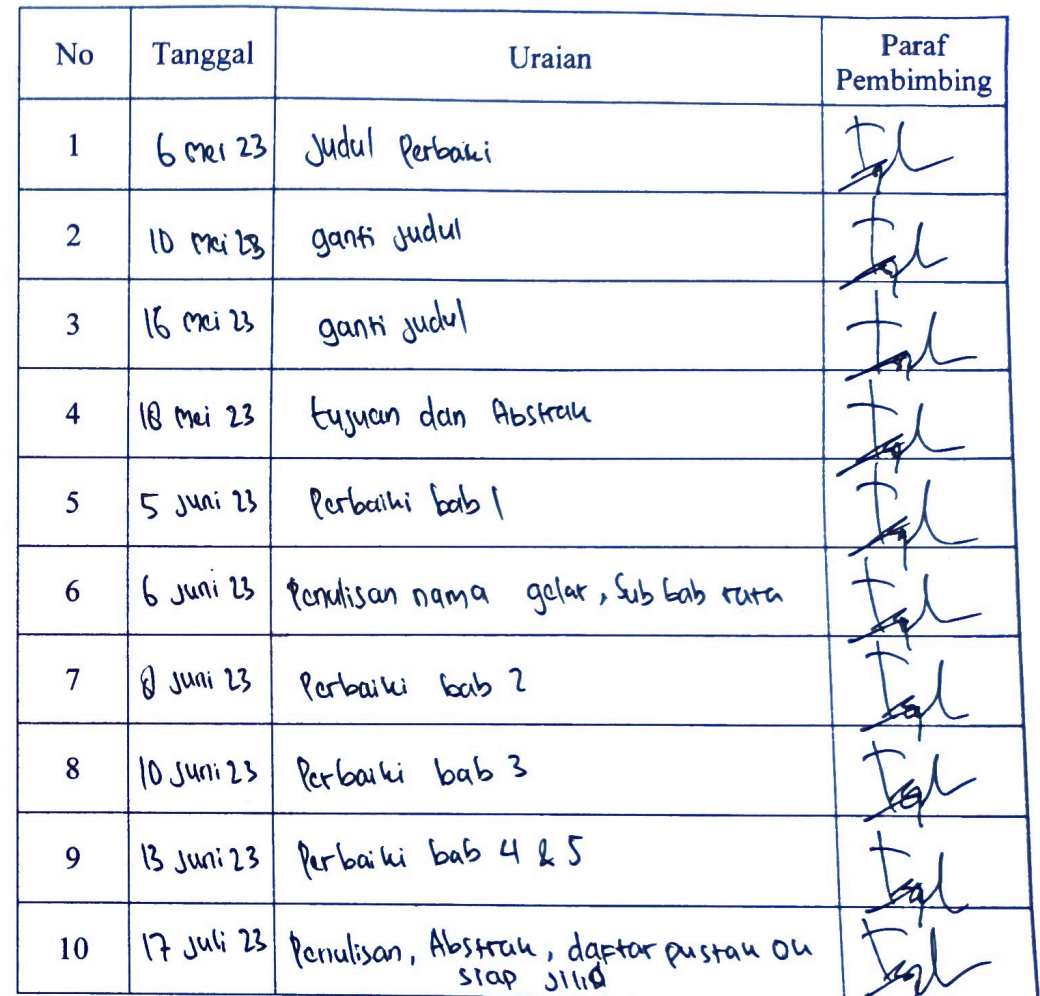 No Tanggal Uraian Paraf Pembimbing
1 6 mei 23 Judul Perbaiki
2 10 mei 23 ganti Judul
3 16 mei 23 ganti Judul
4 18 mei 23 tujuan dan Abstrak
5 5 Juni 23 Perbaiki bab 1
6 6 Juni 23 Penulisan nama gelar, Sub bab rata
7 8 Juni 23 Perbaiki bab 2
8 10 Juni 23 Perbaiki bab 3
9 13 Juni 23 Perbaiki bab 4 & 5
10 17 Juli 23 Penulisan, Abstrak, daftar pustak ok
siap Jilid